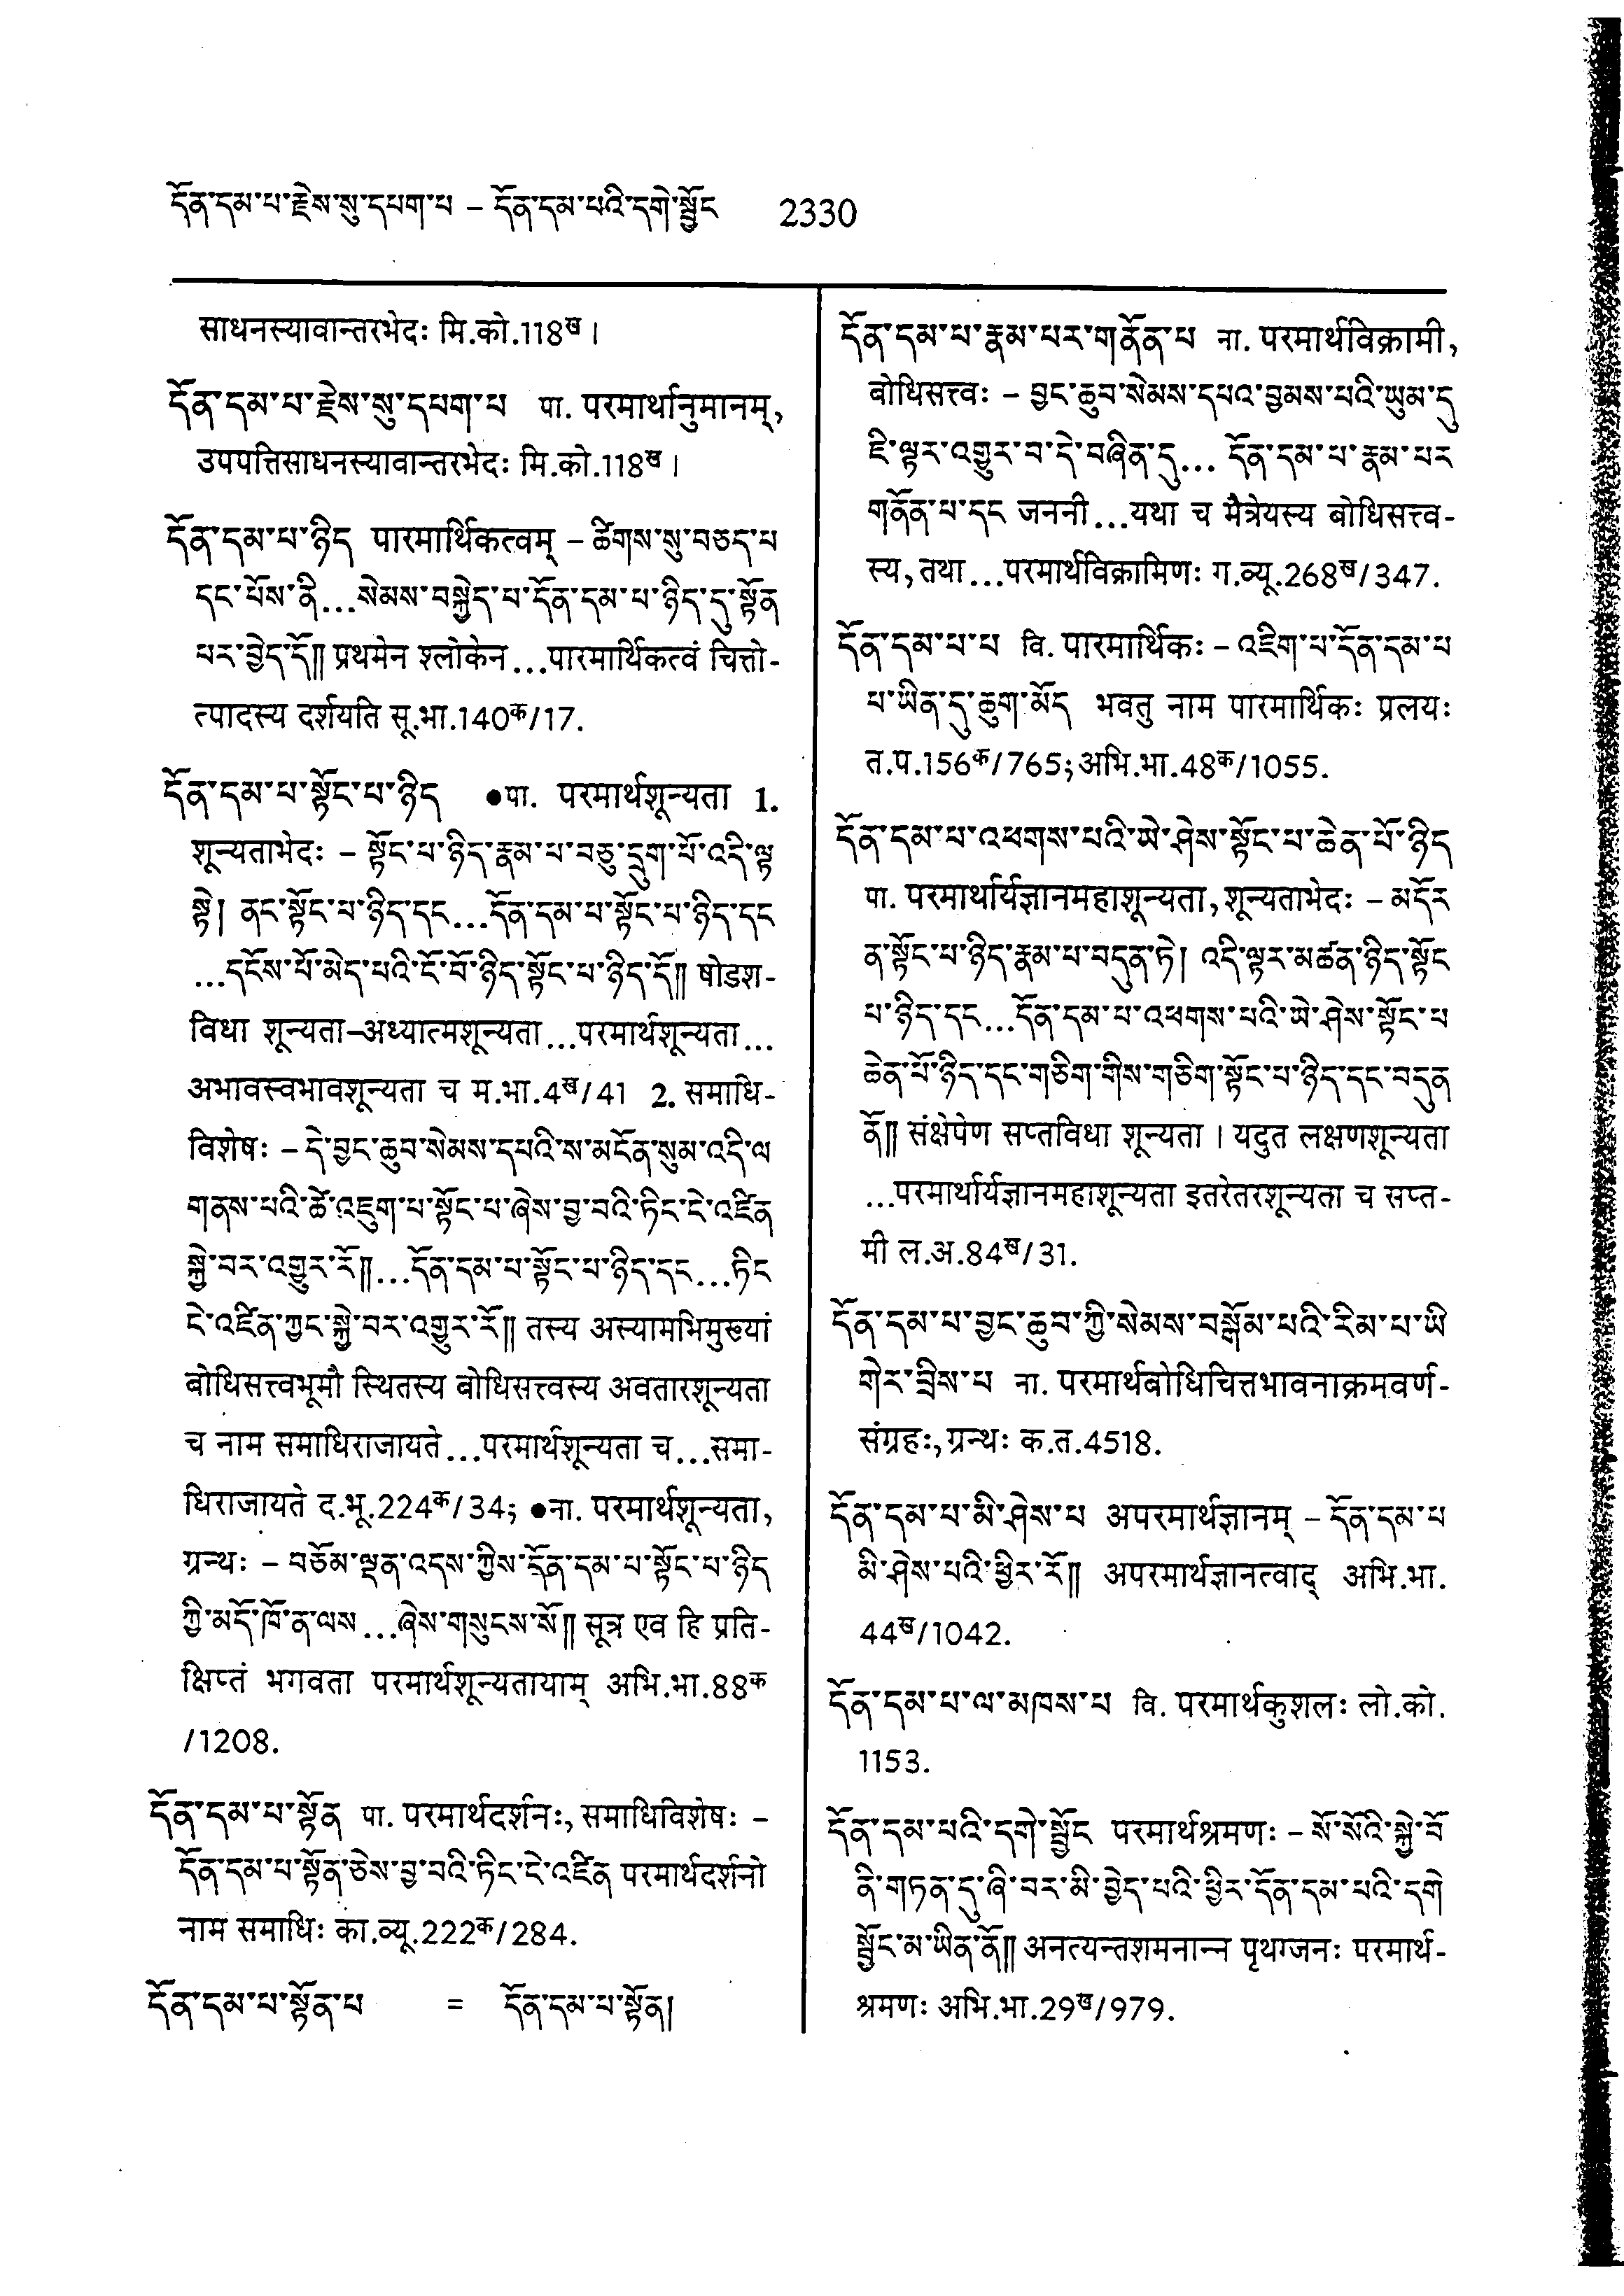 དོན་དམ་པ་རྗེས་སུ་དཔག་པ – དོན་དམ་པའི་དགེ་སྦྱོང 2330
साधनस्यावान्तरभेदः मि.को.118ख।
དོན་དམ་པ་རྗེས་སུ་དཔག་པ पा. परमार्थानुमानम्,
उपपत्तिसाधनस्यावान्तरभेदः मि.को.118ख।
དོན་དམ་པ་ཉིད पारमार्थिकत्वम् – ཚིགས་སུ་བཅད་པ
དང་པོས་ནི...སེམས་བསྐྱེད་པ་དོན་དམ་པ་ཉིད་དུ་སྟོན
པར་བྱེད་དོ།། प्रथमेन श्लोकेन...पारमार्थिकत्वं चित्तो-
त्पादस्य दर्शयति सू.भा.140क/17.
དོན་དམ་པ་སྟོང་པ་ཉིད ●पा. परमार्थशून्यता 1.
शून्यताभेदः – སྟོང་པ་ཉིད་རྣམ་པ་བཅུ་དྲུག་པོ་འདི་ལྟ
སྟེ། ནང་སྟོང་པ་ཉིད་དང...དོན་དམ་པ་སྟོང་པ་ཉིད་དང
...དངོས་པོ་མེད་པའི་ངོ་བོ་ཉིད་སྟོང་པ་ཉིད་དོ།། षोडश-
विधा शून्यता–अध्यात्मशून्यता...परमार्थशून्यता...
अभावस्वभावशून्यता च म.भा.4ख/41 2. समाधि-
विशेषः – དེ་བྱང་ཆུབ་སེམས་དཔའི་ས་མངོན་སུམ་འདི་ལ
གནས་པའི་ཚེ་འཇུག་པ་སྟོང་པ་ཞེས་བྱ་བའི་ཏིང་ངེ་འཛིན
སྐྱེ་བར་འགྱུར་རོ།།...དོན་དམ་པ་སྟོང་པ་ཉིད་དང...ཏིང
ངེ་འཛིན་ཀྱང་སྐྱེ་བར་འགྱུར་རོ།། तस्य अस्यामभिमुख्यां
बोधिसत्त्वभूमौ स्थितस्य बोधिसत्त्वस्य अवतारशून्यता
च नाम समाधिराजायते...परमार्थशून्यता च...समा-
धिराजायते द.भू.224क/34; ●ना. परमार्थशून्यता,
ग्रन्थः – བཅོམ་ལྡན་འདས་ཀྱིས་དོན་དམ་པ་སྟོང་པ་ཉིད
ཀྱི་མདོ་ཁོ་ན་ལས...ཞེས་གསུངས་སོ།། सूत्र एव हि प्रति-
क्षिप्तं भगवता परमार्थशून्यतायाम् अभि.भा.88क
/1208.
དོན་དམ་པ་སྟོན पा. परमार्थदर्शनः, समाधिविशेषः –
དོན་དམ་པ་སྟོན་ཅེས་བྱ་བའི་ཏིང་ངེ་འཛིན परमार्थदर्शनो
नाम समाधिः का.व्यू.222क/284.
དོན་དམ་པ་སྟོན་པ = དོན་དམ་པ་སྟོན།
དོན་དམ་པ་རྣམ་པར་གནོན་པ ना. परमार्थविक्रामी,
बोधिसत्त्वः – བྱང་ཆུབ་སེམས་དཔའ་བྱམས་པའི་ཡུམ་དུ
ཇི་ལྟར་འགྱུར་བ་དེ་བཞིན་དུ... དོན་དམ་པ་རྣམ་པར
གནོན་པ་དང जननी...यथा च मैत्रेयस्य बोधिसत्त्व-
स्य, तथा...परमार्थविक्रामिणः ग.व्यू.268ख/347.
དོན་དམ་པ་པ वि. पारमार्थिकः – འཇིག་པ་དོན་དམ་པ
པ་ཡིན་དུ་ཆུག་མོད भवतु नाम पारमार्थिकः प्रलयः
त.प.156क/765; अभि.भा.48क/1055.
དོན་དམ་པ་འཕགས་པའི་ཡེ་ཤེས་སྟོང་པ་ཆེན་པོ་ཉིད
पा. परमार्थार्यज्ञानमहाशून्यता, शून्यताभेदः – མདོར
ན་སྟོང་པ་ཉིད་རྣམ་པ་བདུན་ཏེ། འདི་ལྟར་མཚན་ཉིད་སྟོང
པ་ཉིད་དང...དོན་དམ་པ་འཕགས་པའི་ཡེ་ཤེས་སྟོང་པ
ཆེན་པོ་ཉིད་དང་གཅིག་གིས་གཅིག་སྟོང་པ་ཉིད་དང་བདུན
ནོ།། संक्षेपेण सप्तविधा शून्यता। यदुत लक्षणशून्यता
...परमार्थार्यज्ञानमहाशून्यता इतरेतरशून्यता च सप्त-
मी ल.अ.84ख/31.
དོན་དམ་པ་བྱང་ཆུབ་ཀྱི་སེམས་བསྒོམ་པའི་རིམ་པ་ཡི
གེར་བྲིས་པ ना. परमार्थबोधिचित्तभावनाक्रमवर्ण-
संग्रहः, ग्रन्थः क.त.4518.
དོན་དམ་པ་མི་ཤེས་པ अपरमार्थज्ञानम् – དོན་དམ་པ
མི་ཤེས་པའི་ཕྱིར་རོ།། अपरमार्थज्ञानत्वाद् अभि.भा.
44ख/1042.
དོན་དམ་པ་ལ་མཁས་པ वि. परमार्थकुशलः लो.को.
1153.
དོན་དམ་པའི་དགེ་སྦྱོང परमार्थश्रमणः – སོ་སོའི་སྐྱེ་བོ
ནི་གཏན་དུ་ཞི་བར་མི་བྱེད་པའི་ཕྱིར་དོན་དམ་པའི་དགེ
སྦྱོང་མ་ཡིན་ནོ།། अनत्यन्तशमनान्न पृथग्जनः परमार्थ-
श्रमणः अभि.भा.29ख/979.